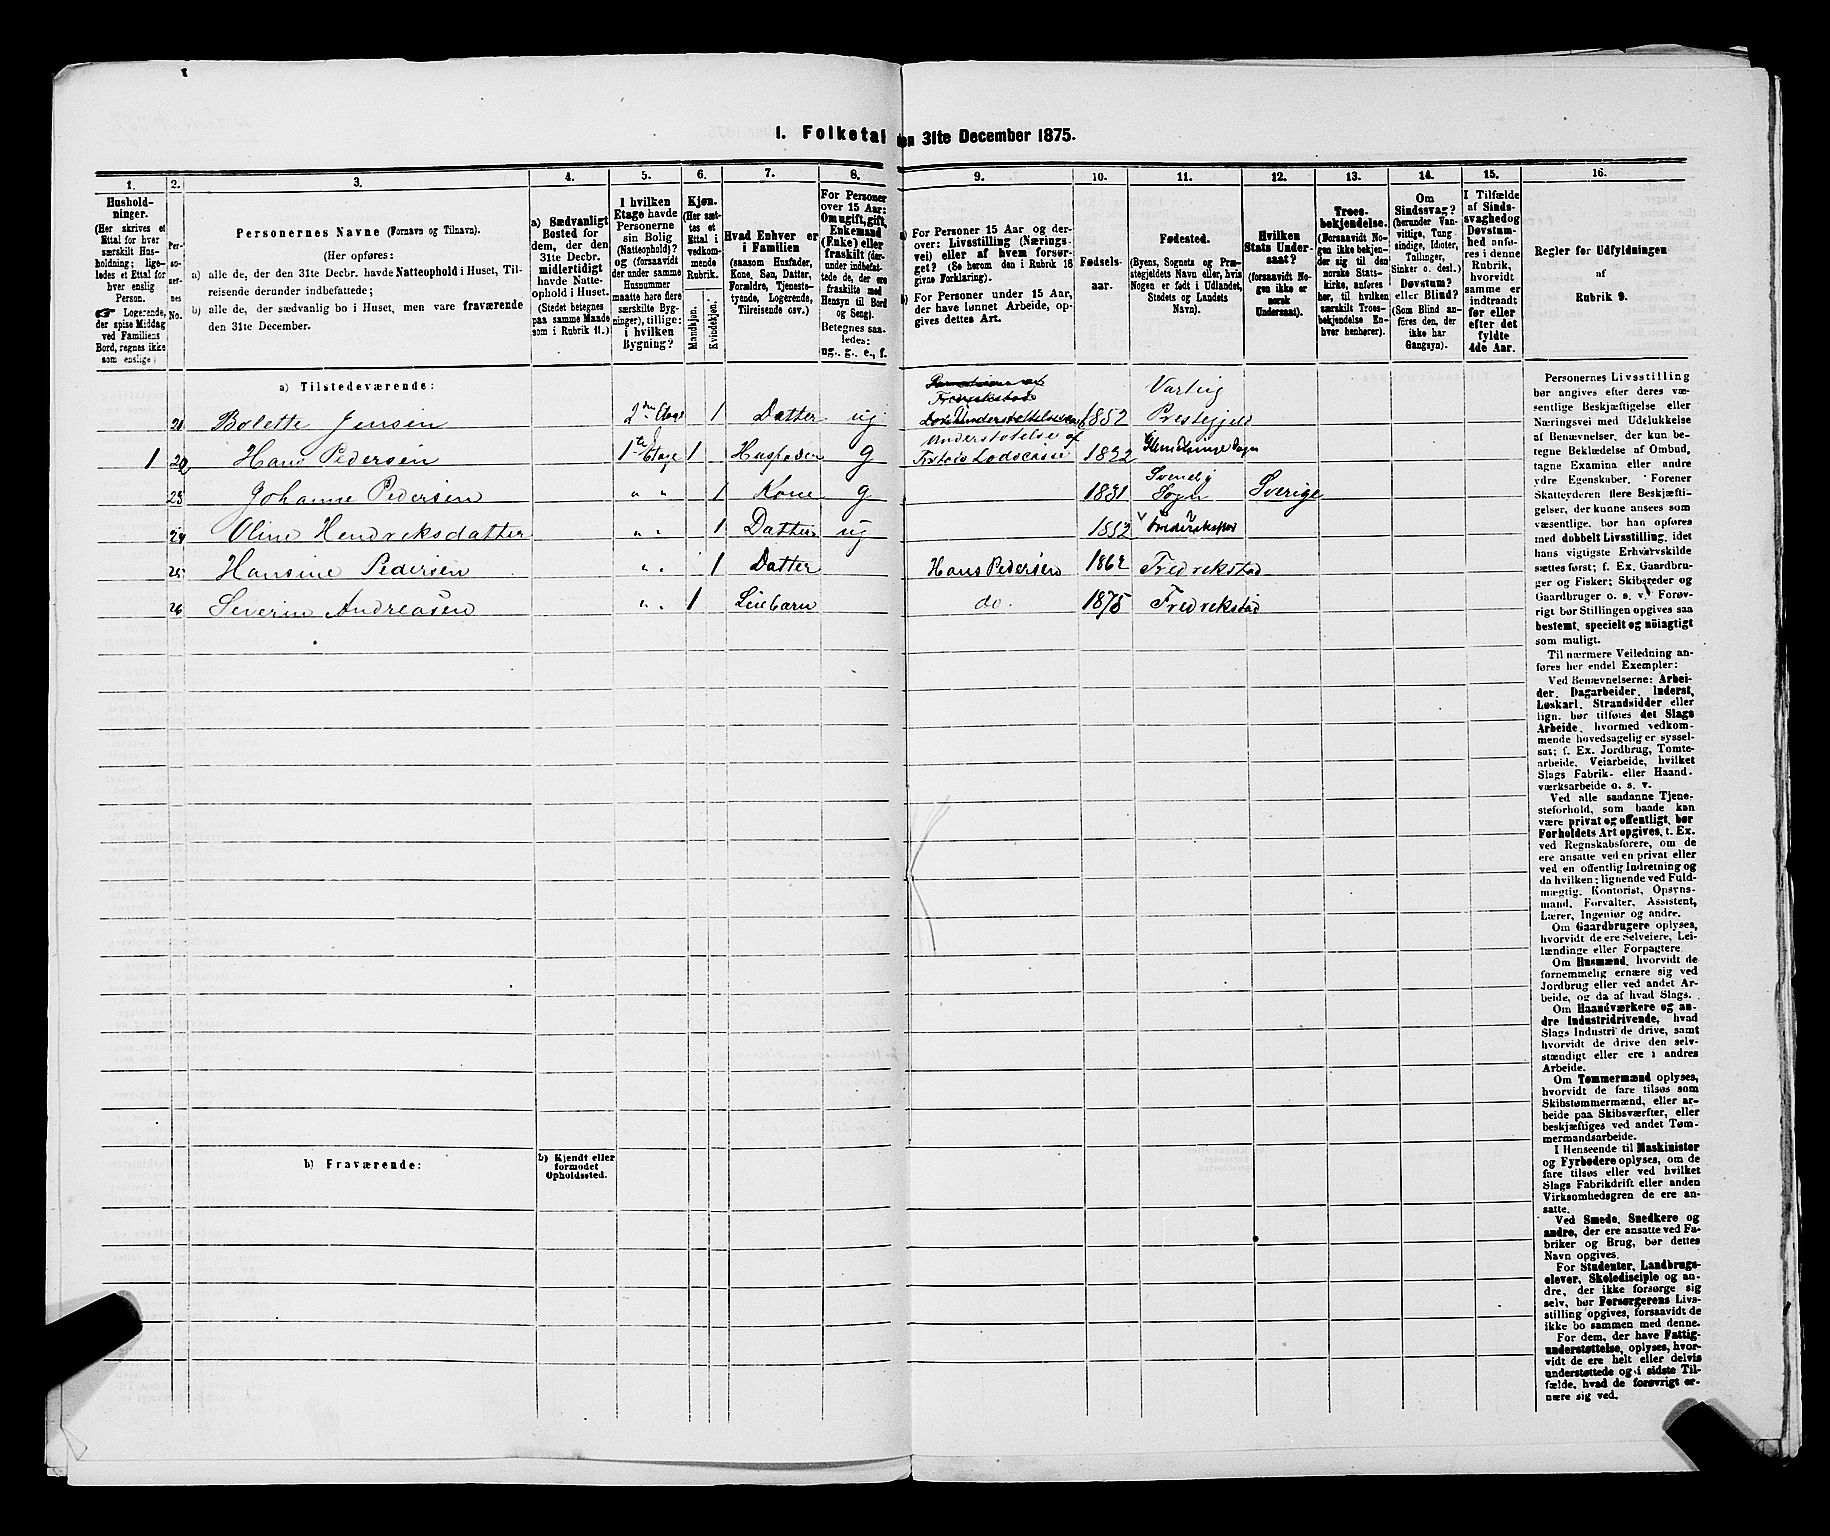 I. Folketal den 31te December 1875.
1.
Hushold-
ninger.
(Her skrives et
Ettal for hver
særskilt Hus-
holdning; lige-
ledes et Ettal for
hver enslig
Person.
☛ Logerende,
der spise Middag
ved Familiens
Bord, regnes ikke
som enslige)
2.
Per-
so-
ner-
nes
No.
3.
Personernes Navne (Fornavn og Tilnavn).
(Her opføres:
a) alle de, der den 31te Decbr. havde Natteophold i Huset, Til-
reisende derunder indbefattede;
b) alle de, der sædvanlig bo i Huset, men vare fraværende
den 31te December.
4.
a) Sædvanligt
Bosted for
dem, der den
31te Decbr.
midlertidigt
havde Natte-
ophold i Huset.
(Stedet betegnes
paa samme Maade
som i Rubrik 11.)
5.
I hvilken
Etage havde
Personerne
sin Bolig
(Natteophold)?
og (forsaavidt
der under samme
Husnummer
maatte høre flere
særskilte Byg-
ninger), tillige:
i hvilken
Bygning?
6.
Kjøn.
(Her sæt-
tes et
Ettal i
vedkom-
mende
Rubrik.
Mandkjøn.
Kvindekjøn.
7.
Hvad Enhver er
i Familien
(saasom Husfader,
Kone, Søn, Datter,
Forældre, Tjeneste-
tyende, Logerende,
Tilreisende osv.)
8.
For Personer
over 15 Aar:
Om ugift, gift,
Enkemand
(Enke) eller
fraskilt (der-
under indbefat-
tede de, der ere
fraskilte med
Hensyn til Bord
og Seng).
Betegnes saa-
ledes:
ug., g., e., f.
9.
a) For Personer 15 Aar og der-
over: Livsstilling (Nærings-
vei) eller af hvem forsør-
get? (Se herom den i Rubrik 16
givne Forklaring).
b) For Personer under 15 Aar,
der have lønnet Arbeide, op-
gives dettes Art.
10.
Fødsels-
aar.
11.
Fødested.
(Byens, Sognets og Præ-
stegjeldets Navn eller, hvis
Nogen er født i Udlandet,
Stedets og Landets
Navn).
12.
Hvilken
Stats Under-
saat?
(forsaavidt No-
gen ikke er
norsk
Undersaat).
13.
Troes-
bekjendelse.
(Forsaavidt No-
gen ikke bekjen-
der sig til den
norske Stats-
kirke, anføres
her, til hvilken
særskilt Troes-
bekjendelse En-
hver henhører).
14.
Om
Sindssvag?
(herunder Van-
vittige, Idioter,
Tung-
sindige,
Tullinger,
Sinker o. desl.)
Døvstum?
eller Blind?
(Som Blind an-
føres den, der
ikke har
Gangsyn).
15.
I Tilfælde
af Sinds-
svaghed og
Døvstum-
hed anfø-
res i denne
Rubrik,
hvorvidt
samme er
indtraadt
før eller
efter det
fyldte
4de Aar.
16.
Regler for Udfyldningen
af
Rubrik 9.
a) Tilstedeværende:
21 Bolette Jensen 2den Etage 1 Datter ug 1852 Prestegjeld
1 Hans Pedersen 1te Etage 1 Husfader g Understøtelse af Lodscasse 1832
23 Johanne Pedersen " " 1 Kone g 1831 Sogn Sverige
24 Oline Hendreksdatter " " 1 Datter ug 1852
25 Hansine Pedersen " " 1 Datter Hans Pedersen 1862 Fredrekstad
26 Severin Andreasen " " 1 Leiebarn do. 1875 Fredrekstad
b) Fraværende:
b) Kjendt eller
formodet
Opholdssted.
Personernes Livsstilling
bør angives efter deres væ-
sentlige Beskjæftigelse eller
Næringsvei med Udelukkelse
af Benævnelser, der kun be-
tegne Beklædelse af Ombud,
tagne Examina eller andre
ydre Egenskaber. Forener
Skatteyderen flere Beskjæfti-
gelser, der kunne ansees som
væsentlige, bør han opføres
med dobbelt Livsstilling, idet
hans vigtigste Erhvervskilde
sættes først; f. Ex. Gaardbru-
ger og Fisker; Skibsreder og
Gaardbruger o. s. v. Forøv-
rigt bør Stillingen opgives saa
bestemt, specielt og nöiagtigt
som muligt.
Til nærmere Veiledning an-
føres her endel Exempler:
Ved Benævnelserne: Arbei-
der, Dagarbeider, Inderst,
Løskarl, Strandsidder eller
lign. bør tilføies det Slags
Arbeide, hvormed vedkom-
mende hovedsagelig er syssel-
sat; f. Ex. Jordbrug, Tomte-
arbeide, Veiarbeide, hvilket
Slags Fabrik- eller Haand-
værksarbeide o. s. v.
Ved alle saadanne Tjene-
steforhold, som baade kan
være privat og offentligt, bør
Forholdets Art opgives, t. Ex.
ved Regnskabsførere, om de
ere ansatte ved en privat eller
ved en offentlig Indretning og
da hvilken; lignende ved Fuld-
mægtig, Kontorist, Opsyns-
mand, Forvalter, Assistent,
Lærer, Ingeniør og andre.
Om Gaardbrugere oplyses,
hvorvidt de ere Selveiere, Lei-
lændinge eller Forpagtere.
Om Husmænd, hvorvidt de
fornemmelig ernære sig ved
Jordbrug eller ved andet Ar-
beide, og da af hvad Slags.
Om Haandværkere og an-
dre Industridrivende, hvad
Slags Industri de drive, samt
hvorvidt de drive den selv-
stændigt eller ere i andres
Arbeide.
Om Tømmermænd oplyses,
hvorvidt de fare tilsøs som
Skibstømmermænd, eller ar-
beide paa Skibsværfter, eller
beskjæftiges ved andet Tøm-
mermandsarbeide.
I Henseende til Maskinister
og Fyrbødere oplyses, om de
fare tilsøs eller ved hvilket
Slags Fabrikdrift eller anden
Virksomhedsgren de ere an-
satte.
Ved Smede, Snedkere og
andre, der ere ansatte ved Fa-
briker og Brug, bør dettes
Navn opgives.
For Studenter, Landbrugs-
elever, Skoledisciple og an-
dre, der ikke forsørge sig
selv, bør Forsørgerens Livs-
stilling opgives, forsaavidt de
ikke bo sammen med denne.
For dem, der have Fattig-
understøttelse, oplyses, hvor-
vidt de ere helt eller delvis
understøttede og i sidste Til-
fælde, hvad de forøvrigt er-
nære sig ved.